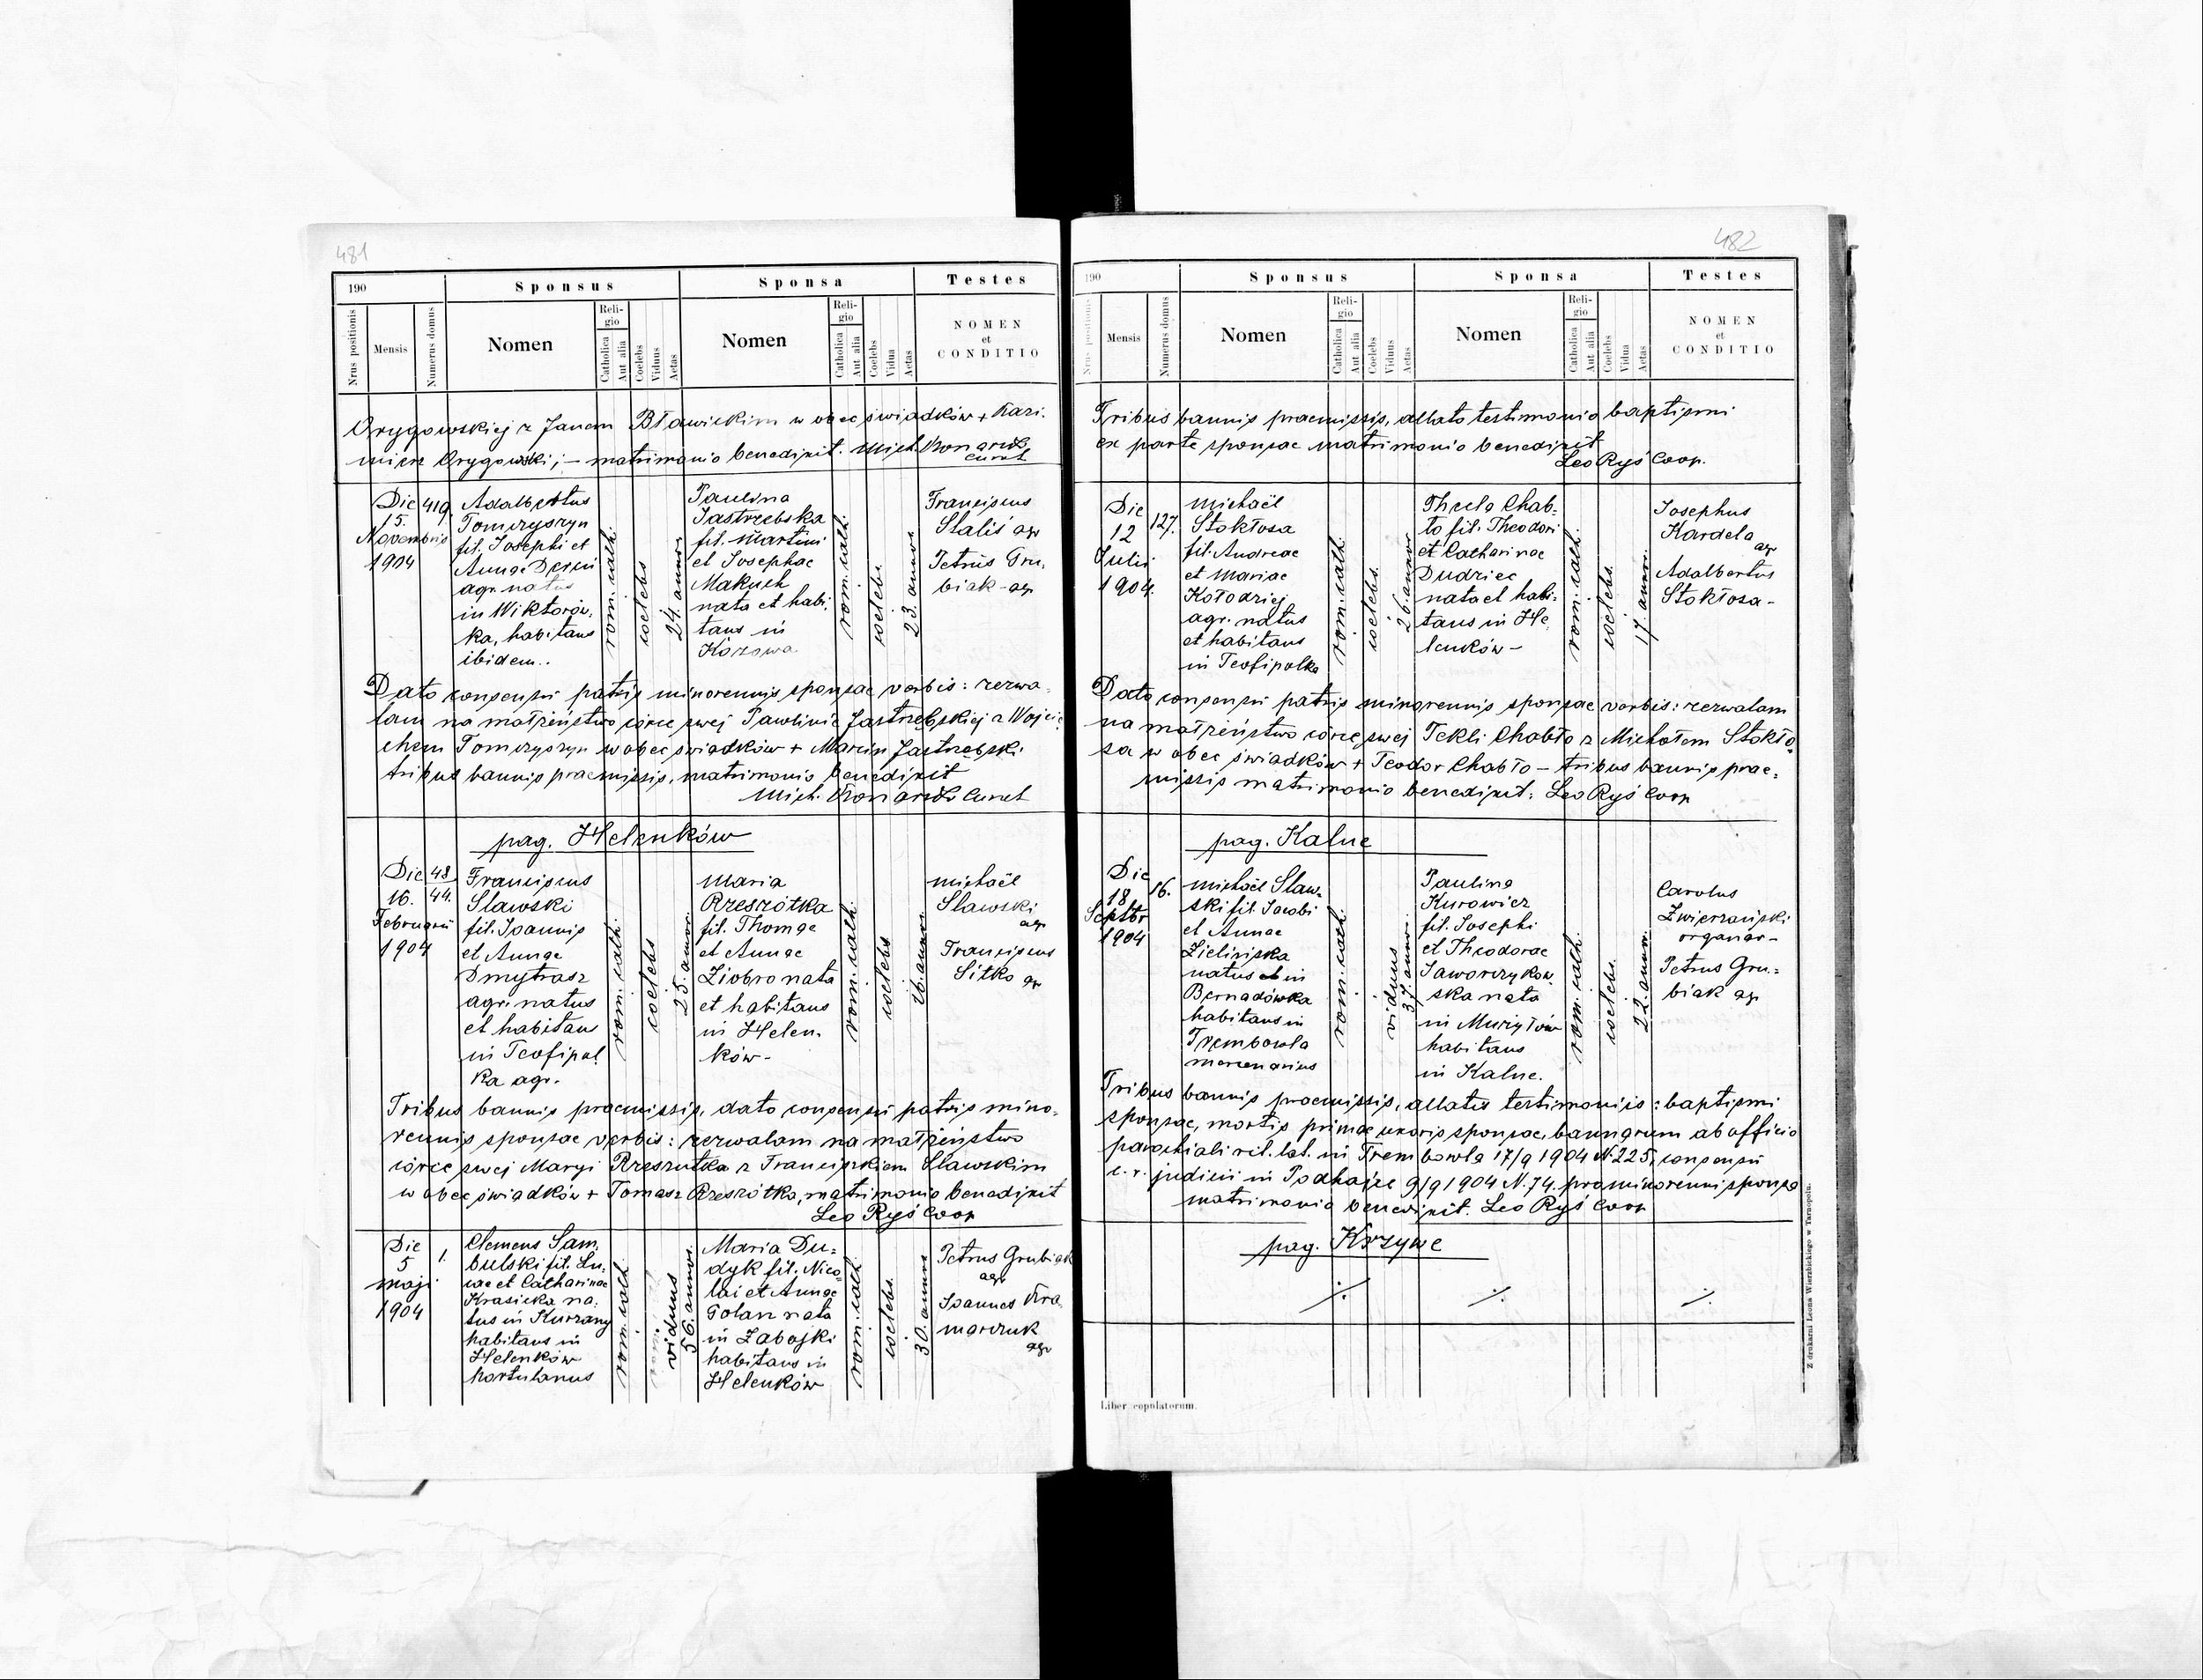 481
190
Sponsus
Sponsa
Testes
Nrus positionis
Mensis
Numerus domus
Nomen
Religio
Catholica
Aut alia
Coelebs
Viduus
Aetas
Nomen
Religio
Catholica
Aut alia
Coelebs
Vidua
Aetas
NOMEN
et
CONDITIO
Grygowskiej z Janem Bławickim w obec świadków + Kazi-
mierz Grygowski; – matrimonio benedixit. Mich.
Curat
Die 15. Novembris 1904
419.
Adalbertus
Tomczyszyn
fil. Josephi et
Annae
agr. natus
in Wiktorów-
ka, habitans
ibidem..
rom. cath.
coelebs
24. annor.
Paulina
Jastrzebska
fil. Martini
et Josephae
Makuch
nata et habi-
tans in
Kozowa
rom. cath.
coelebs.
23. annor.
Franciscus
Stalis agr
Petrus Gru-
biak - agr
Dato consensu patris minorennis sponsae verbis: zezwa-
lam na małżeństwo córce swej Pawlinie Jastrzebskiej z Wojcie-
chem Tomczyszyn w obec świadków + Marcin Jastrzebski
tribus bannis praemissis, matrimonio benedixit
Mich. Curat
pag. Helenków
Die 16. Februarii 1904
48
44.
Franciscus
Slawski
fil. Joannis
et Annae
Dmytrasz
agr. natus
et habitan
in Teofipol
ka agr.
rom. cath.
coelebs
25. annor.
Maria
Rzeszótka
fil. Thomae
et Annae
Ziobro nata
et habitans
in Helen-
ków -
rom. cath.
coelebs
16. annor.
Michaël
Slawski
agr
Franciscus
Sitko agr
Tribus bannis praemissis, dato consensu patris mino-
rennis sponsae verbis: zezwalam na małżeństwo
córce swej Maryi Rzeszutka z Franciszkiem Slawskim
w obec świadków + Tomasz Rzeszótka, matrimonio benedixit
Leo Ryś Coop
Die 5 Maji 1904
1.
Clemens Sam-
bulski fil. Lu-
cae et Catharinae
Krasicka na-
tus in Kurzany
habitans in
Helenków
hortulanus
rom. cath.
viduus
56. annor.
Maria Du-
dyk fil. Nico-
lai et Annae
Polan nata
in Zabojki
habitans in
Helenków
rom. cath.
coelebs.
30. annor
Petrus Grubiak
agr
Joannes Kra-
marczuk
agr
482
190
Sponsus
Sponsa
Testes
Nrus positionis
Mensis
Numerus domus
Nomen
Religio
Catholica
Aut alia
Coelebs
Viduus
Aetas
Nomen
Religio
Catholica
Aut alia
Coelebs
Vidua
Aetas
NOMEN
et
CONDITIO
Tribus bannis praemissis, allato testimonio baptismi
ex parte sponsae matrimonio benedixit
Leo Ryś Coop.
Die 12 Julii 1904.
127.
Michaël
Stokłosa
fil. Andreae
et Mariae
Kołodziej
agr. natus
et habitans
in Teofipolka
rom. cath.
coelebs.
26. annor
Thecla Chab-
ło fil. Theodori
et Catharinae
Dudziec
nata et habi-
tans in He-
lenków -
rom. cath.
coelebs.
17. annor.
Josephus
Kardela
agr
Adalbertus
Stokłosa -
Dato consensu patris minorennis sponsae verbis: zezwalam
na małżeństwo córce swej Tekli Chabło z Michałem Stokło-
sa w obec świadków + Teodor Chabło – tribus bannis prae-
missis matrimonio benedixit: Leo Ryś Coop
pag. Kalne
Die 18 Septbr 1904
16.
Michaël Slaw-
ski fil. Jacobi
et Annae
Zielinska
natus in
Bernadówka
habitans in
Trembowla
mercenarius
rom. cath.
viduus
37. annor.
Paulina
Kurowicz
fil. Josephi
et Theodorae
Jaworzykow-
ska nata
in Muzyłów
habitans
in Kalne.
rom. cath.
coelebs.
22. annor.
Carolus
Zwierzański
organar -
Petrus Gru-
biak agr
Tribus bannis praemissis, allatis testimoniis: baptismi
sponsae, mortis primae uxoris sponsae, bannorum ab officio
parochiali rit. lat. in Trembowla 17/9 1904 N. 225, consensu
c. r. judicii in Podhajce 9/9 1904 N. 74. pro minorenni sponsa
matrimonio benedixit. Leo Ryś Coop
pag. Krzywe
./.
./.
./.
Liber copulatorum.
Z drukarni Leona Wierzbickiego w Tarnopolu.